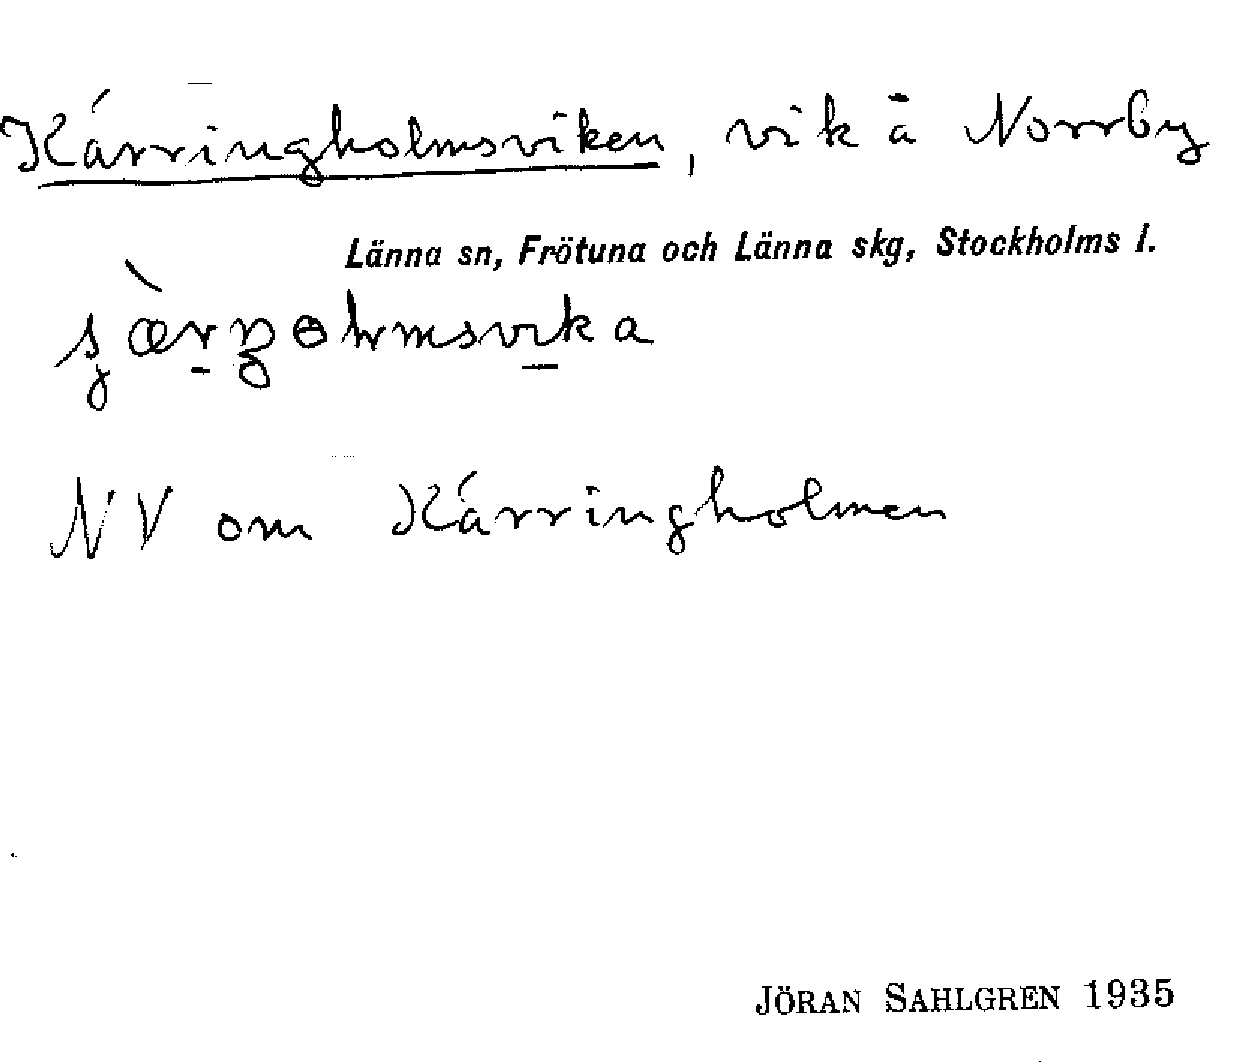 Kärringholmsviken, vik å Norrby
Länna sn, Frötuna och Länna skg, Stockholms l.
NV om Kärringholmen
JÖRAN SAHLGREN 1935